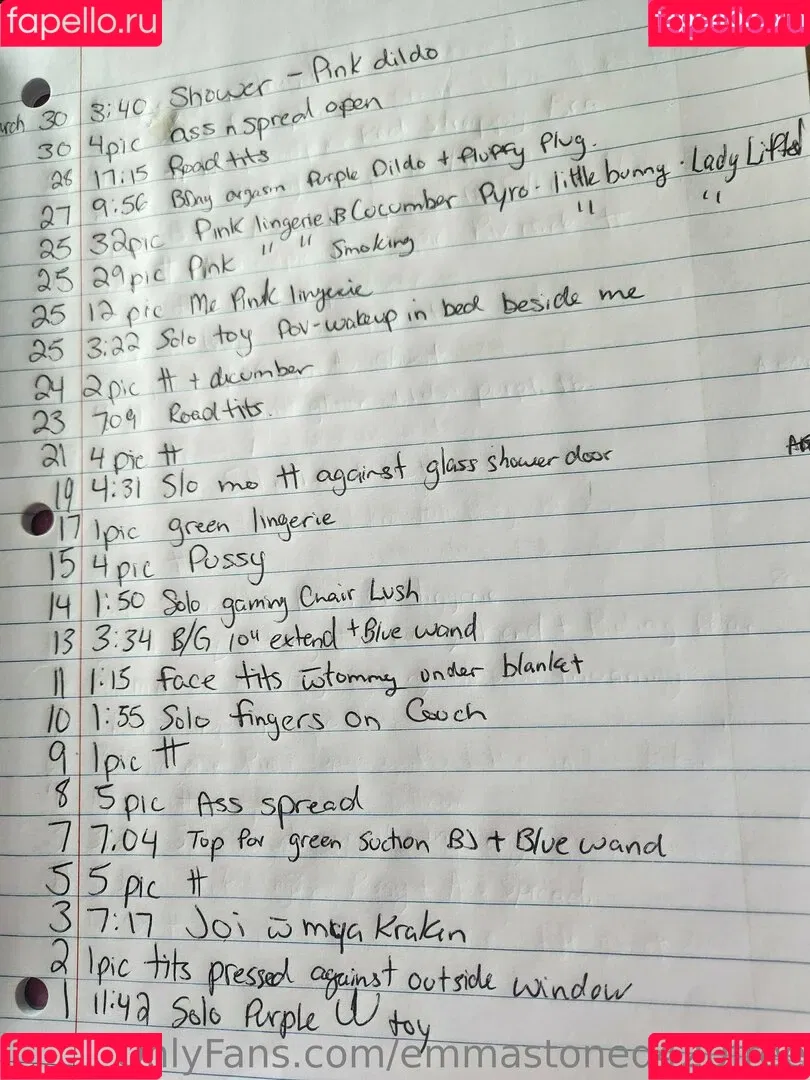 fapello.ru fapello.ru
March 30 3:40 Shower - Pink dildo
30 4pic ass n spread open
28 17:15 Road tits
27 9:56 orgasm Purple Dildo + fluffy Plug.
25 32pic Pink lingerie Cocumber Pyro - little bunny - Lady Lifted
25 29pic Pink " " Smoking " "
25 12 pic Me Pink lingerie
25 3:22 Solo toy Pov-wakeup in bed beside me
24 2pic tt +
23 709 Road tits.
21 4 pic tt
19 4:31 Slo mo tt against glass shower door
17 1pic green lingerie
15 4 pic Pussy
14 1:50 Solo gaming Chair Lush
13 3:34 B/G 10" extend + Blue wand
11 1:15 face tits w tommy under blanket
10 1:55 Solo fingers on Couch
9 1pic tt
8 5 pic Ass spread
7 7:04 Top for green Suction BJ + Blue wand
5 5 pic tt
3 7:17 Joi w mya Kraken
2 1pic tits pressed against outside window
1 11:42 Solo Purple W toy
fapello.ru fapello.ru